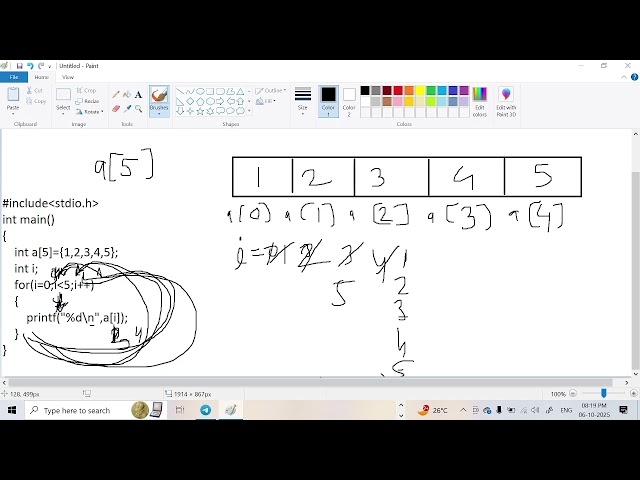 Untitled - Paint
File Home View
Paste Cut Copy Select Crop Resize Rotate Brushes Shapes Outline Fill Size Color 1 Color 2 Edit colors Edit with Paint 3D
Clipboard Image Tools Shapes Colors
a[5]
1 2 3 4 5
a[0] a[1] a[2] a[3] a[4]
#include<stdio.h>
int main()
{
int a[5]={1,2,3,4,5};
int i;
for(i=0;i<5;i++)
{
printf("%d\n",a[i]);
}
}
i=
5
1
2
3
4
5
128, 499px 1914 × 867px 100%
Type here to search 26°C ENG 08:19 PM 06-10-2025